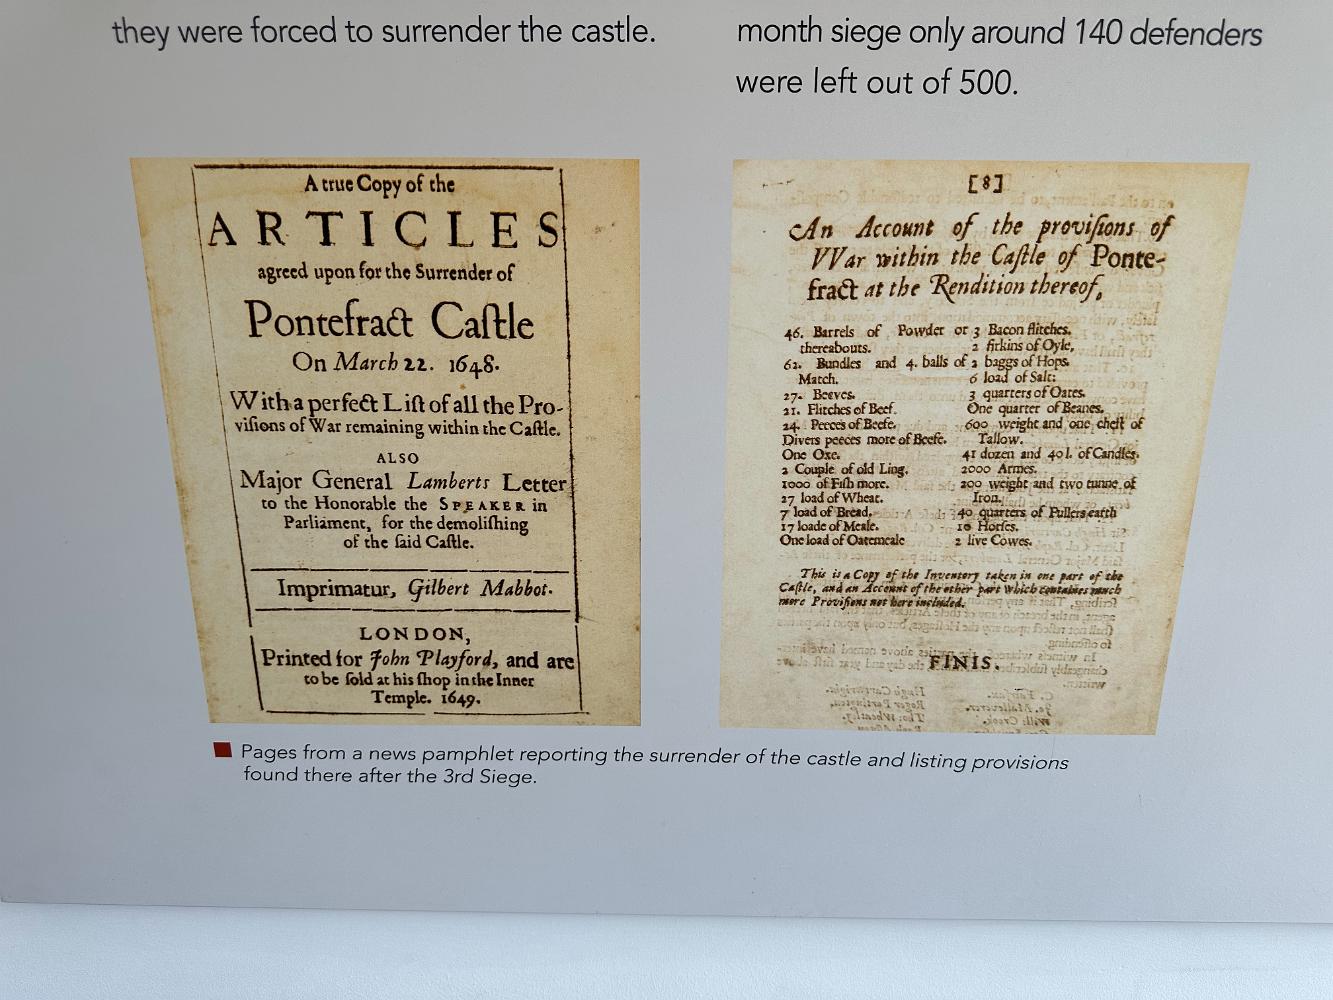 they were forced to surrender the castle.
month siege only around 140 defenders
were left out of 500.
A true Copy of the
ARTICLES
agreed upon for the Surrender of
Pontefract Caſtle
On March 22. 1648.
With a perfect Liſt of all the Pro-
viſions of War remaining within the Caſtle.
ALSO
Major General Lamberts Letter
to the Honorable the SPEAKER in
Parliament, for the demoliſhing
of the ſaid Caſtle.
Imprimatur, Gilbert Mabbot.
LONDON,
Printed for John Playford, and are
to be ſold at his ſhop in the Inner
Temple. 1649.
[8]
An Account of the proviſions of
VVar within the Caſtle of Ponte-
fract at the Rendition thereof,
46. Barrels of Powder or
thereabouts.
62. Bundles and 4. balls of
Match.
27. Beeves.
21. Flitches of Beef.
24. Peeces of Beefe.
Divers peeces more of Beefe.
One Oxe.
2 Couple of old Ling.
1000 of Fiſh more.
27 load of Wheat.
7 load of Bread.
17 loade of Meale.
One load of Oatemeale
3 Bacon flitches.
2 firkins of Oyle,
2 baggs of Hops.
6 load of Salt:
3 quarters of Oates.
One quarter of Beanes.
600 weight and one cheſt of
Tallow.
41 dozen and 40 l. of Candles.
2000 Armes.
200 weight and two tunne of
Iron.
40 quarters of Fullers earth
10 Horſes.
2 live Cowes.
This is a Copy of the Inventory taken in one part of the
Caſtle, and an Account of the other part which containes much
more Proviſions not here included.
FINIS.
Pages from a news pamphlet reporting the surrender of the castle and listing provisions
found there after the 3rd Siege.